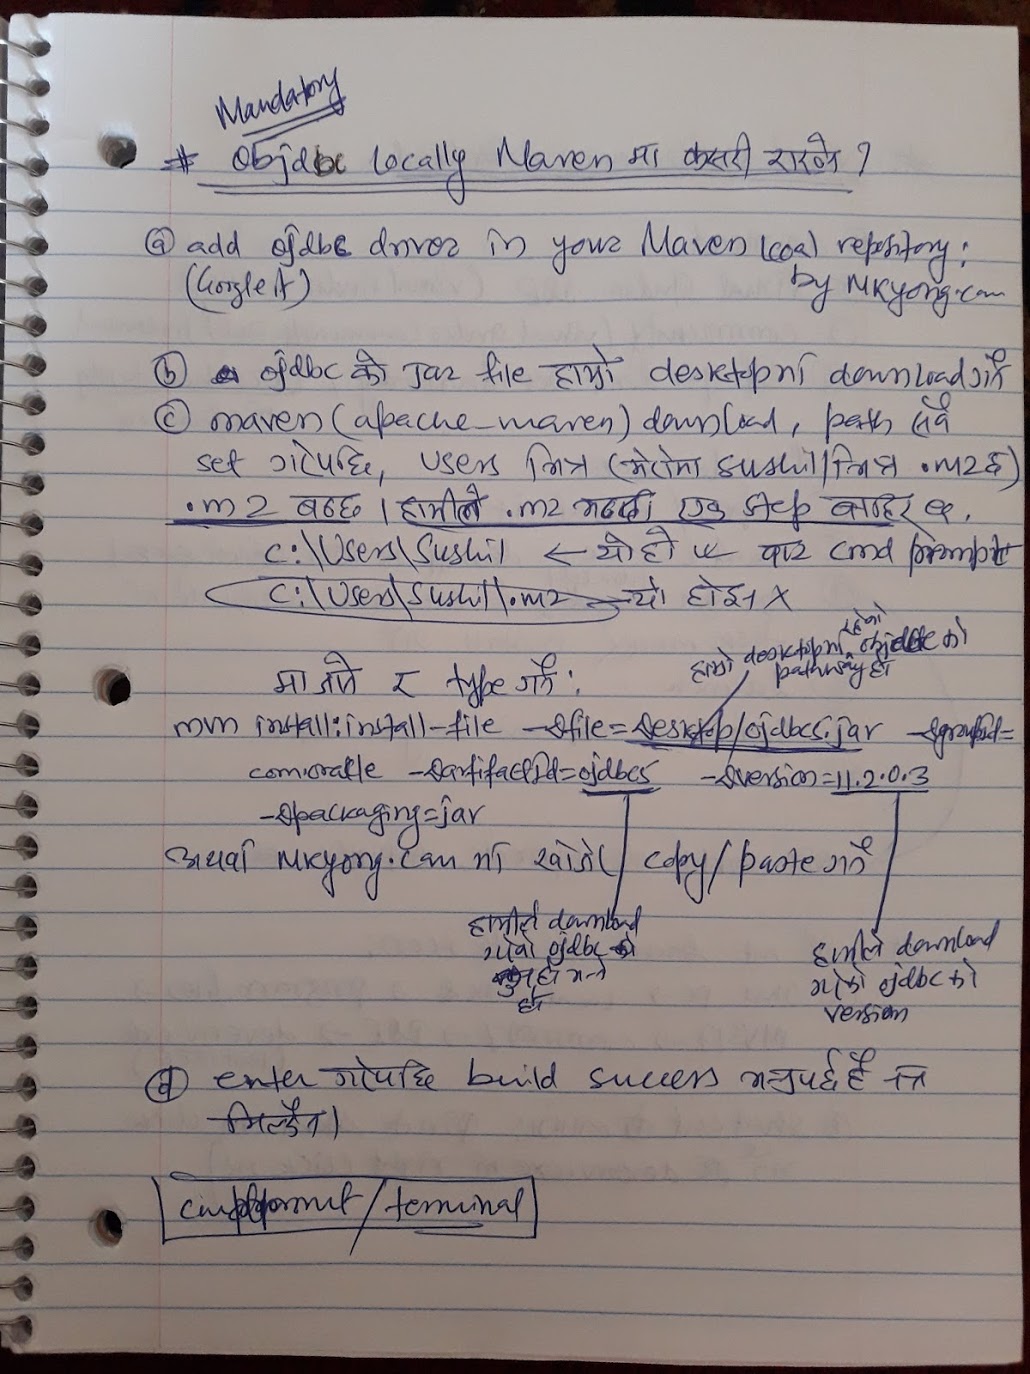 Mandatory
# Objdbc locally Maven मा कसरी राख्ने ?
ⓐ add ojdbc driver in your Maven local repository:
(Google it) by MKyong.com
ⓑ ojdbc को jar file हाम्रो desktopमा download गर्ने
ⓒ maven (apache-maven) download, path सबै
set गरेपछि, users भित्र (मेरोमा sushil भित्र .m2 छ)
.m2 बन्छ । हामीले .m2 भन्दा एक step बाहिर
C:\Users\Sushil ← यो हो ← बाट cmd prompt
C:\Users\Sushil\.m2 → यो होइन X
हाम्रो desktopमा रहेको objdbc को
pathway हो
मा जाने र type गर्ने:
mvn install:install-file -Dfile=Desktop/ojdbc5.jar -DgroupId=
com.oracle -DartifactId=ojdbc5 -Dversion=11.2.0.3
-Dpackaging=jar
अथवा MKyong.com मा copy/paste गर्ने
हामीले download
गरेको ojdbc
हो भने
हो
हामीले download
गरेको ojdbc को
version
ⓓ enter गरेपछि build success भन्नुपर्छ है
मिल्दैन।
/terminal